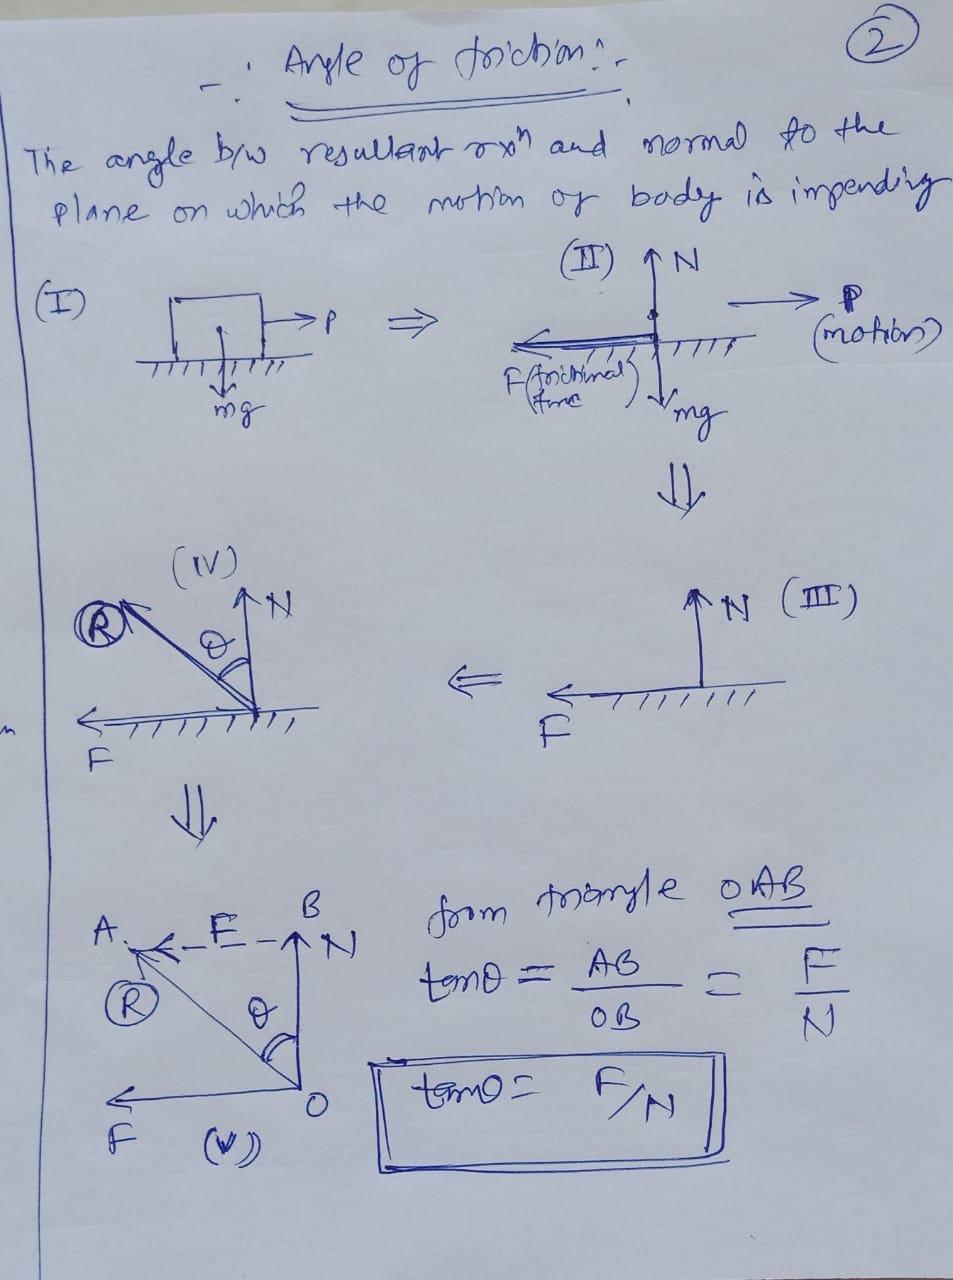 -: Angle of friction:-
2
The angle b/w resultant rxn and normal to the
plane on which the motion of body is impending
(I)
P
⇒
mg
(II)
N
P
(motion)
F(frictional
force)
mg
⇓
(IV)
R
N
θ
F
⇐
N (III)
F
⇓
A
F
B
N
R
θ
F
O
(V)
from triangle OAB
tanθ = AB/OB = F/N
tanθ = F/N